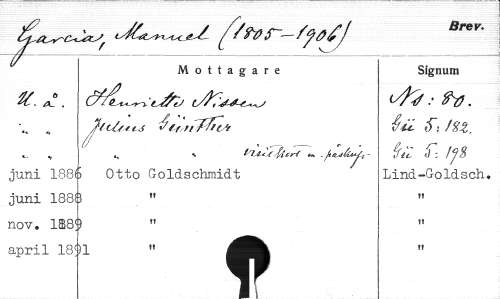 Garcia, Manuel (1805-1906) Brev.
Mottagare Signum
U. å. Henriette Nissen Ns: 80.
" " Julius Günther Gü 5: 182.
" " " " visitkort m. påskrift Gü 5: 198
juni 1886 Otto Goldschmidt Lind-Goldsch.
juni 1888 " "
nov. 1889 " "
april 1891 " "